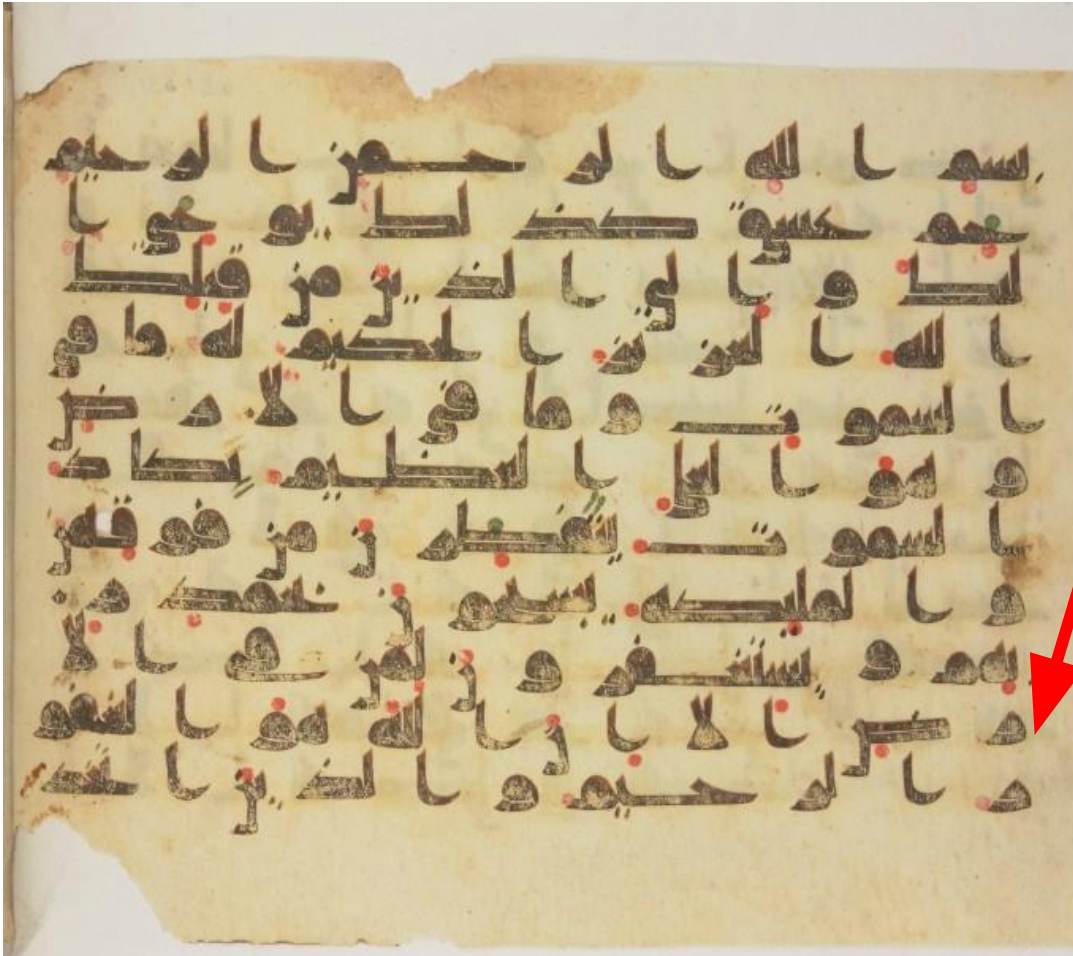 بسم الله الرحمن الرحيم
حم عسق كذلك يوحي ا
ليك و الى الذين من قبلك
الله العزيز الحكيم له ما في
السموت وما في الارض
وهو العلي العظيم تكاد
السموت يتفطرن من فوقهن
والملئكة يسبحون بحمد ر
بهم و يستغفرون لمن في الا
رض الا ان الله هو الغفو
ر الرحيم والذين اتخذ